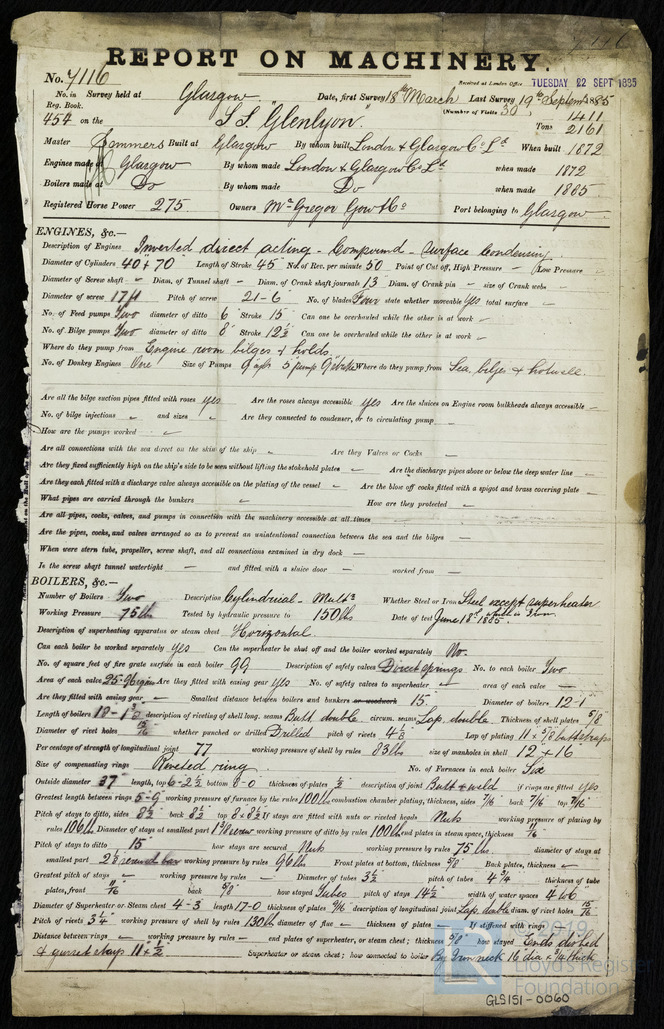 7116
REPORT ON MACHINERY.
No. 7116
Received at London Office TUESDAY 22 SEPT 1885
No. in Survey held at Glasgow Date, first Survey 18th March Last Survey 19th Septem 1885
Reg. Book. (Number of Visits 30) 1411
454 on the S.S. "Glenlyon" Tons 2161
Master Sommers Built at Glasgow By whom built London & Glasgow Co. Ld. When built 1872
Engines made at Glasgow By whom made London & Glasgow Co. Ld. when made 1872
Boilers made at Do By whom made Do when made 1885
Registered Horse Power 275 Owners McGregor Gow & Co Port belonging to Glasgow
ENGINES, &c.—
Description of Engines Inverted direct acting - Compound - Surface Condensing
Diameter of Cylinders 40" & 70" Length of Stroke 45" No. of Rev. per minute 50 Point of Cut off, High Pressure – Low Pressure –
Diameter of Screw shaft – Diam. of Tunnel shaft – Diam. of Crank shaft journals 13 Diam. of Crank pin – size of Crank webs –
Diameter of screw 17 ft Pitch of screw 21-6 No. of blades Four state whether moveable yes total surface –
No. of Feed pumps Two diameter of ditto 6" Stroke 15" Can one be overhauled while the other is at work –
No. of Bilge pumps Two diameter of ditto 8" Stroke 12½ Can one be overhauled while the other is at work –
Where do they pump from Engine room bilges & holds
No. of Donkey Engines One Size of Pumps Where do they pump from Sea, bilge & hotwell
Are all the bilge suction pipes fitted with roses yes Are the roses always accessible yes Are the sluices on Engine room bulkheads always accessible –
No. of bilge injections – and sizes – Are they connected to condenser, or to circulating pump –
How are the pumps worked –
Are all connections with the sea direct on the skin of the ship – Are they Valves or Cocks –
Are they fixed sufficiently high on the ship's side to be seen without lifting the stokehold plates – Are the discharge pipes above or below the deep water line –
Are they each fitted with a discharge valve always accessible on the plating of the vessel – Are the blow off cocks fitted with a spigot and brass covering plate –
What pipes are carried through the bunkers – How are they protected –
Are all pipes, cocks, valves, and pumps in connection with the machinery accessible at all times
Are the pipes, cocks, and valves arranged so as to prevent an unintentional connection between the sea and the bilges –
When were stern tube, propeller, screw shaft, and all connections examined in dry dock –
Is the screw shaft tunnel watertight – and fitted with a sluice door – worked from –
BOILERS, &c.—
Number of Boilers Two Description Cylindrical - Multr Whether Steel or Iron Steel except superheater which is Iron
Working Pressure 75 lb Tested by hydraulic pressure to 150 lbs Date of test June 18th 1885.
Description of superheating apparatus or steam chest Horizontal
Can each boiler be worked separately yes Can the superheater be shut off and the boiler worked separately No.
No. of square feet of fire grate surface in each boiler 99 Description of safety valves Direct springs No. to each boiler Two
Area of each valve 25.96 Are they fitted with easing gear yes No. of safety valves to superheater – area of each valve –
Are they fitted with easing gear – Smallest distance between boilers and bunkers or woodwork 15. Diameter of boilers 12-1
Length of boilers 18-1 description of riveting of shell long. seams Butt double circum. seams Lap. double Thickness of shell plates 5/8
Diameter of rivet holes 15/16 whether punched or drilled Drilled pitch of rivets 4 1/8 Lap of plating 11 x 5/8 buttstraps
Percentage of strength of longitudinal joint 77 working pressure of shell by rules 83 lbs size of manholes in shell 12 x 16
Size of compensating rings Riveted ring No. of Furnaces in each boiler Six
Outside diameter 37" length, top 6-2½ bottom 8-0 thickness of plates ½ description of joint Butt & weld if rings are fitted yes
Greatest length between rings 5-9 working pressure of furnace by the rules 100 lb combustion chamber plating, thickness, sides 7/16 back 7/16 top 7/16
Pitch of stays to ditto, sides 8½ back 8½ top 8 x 8½ If stays are fitted with nuts or riveted heads Nuts working pressure of plating by
rules 106 lb Diameter of stays at smallest part working pressure of ditto by rules 100 lb end plates in steam space, thickness 11/16
Pitch of stays to ditto 15" how stays are secured Nuts working pressure by rules 75 lbs. diameter of stays at
smallest part 2" round bar working pressure by rules 96 lb Front plates at bottom, thickness 5/8 Back plates, thickness –
Greatest pitch of stays – working pressure by rules – Diameter of tubes 3½ pitch of tubes 4¾ thickness of tube
plates, front 11/16 back 5/8 how stayed Tubes pitch of stays 14½ width of water spaces 4 to 6
Diameter of Superheater or Steam chest 4-3 length 17-0 thickness of plates 9/16 description of longitudinal joint Lap. double diam. of rivet holes 15/16
Pitch of rivets 3¼ working pressure of shell by rules 130 lb diameter of flue – thickness of plates – If stiffened with rings –
Distance between rings – working pressure by rules – end plates of superheater, or steam chest; thickness 5/8 how stayed Ends dished
& gusset stays 11 x ½ Superheater or steam chest; how connected to boiler By Iron neck 16 dia x ¾ thick
© 2019
Lloyd's Register
Foundation
GLS151-0060